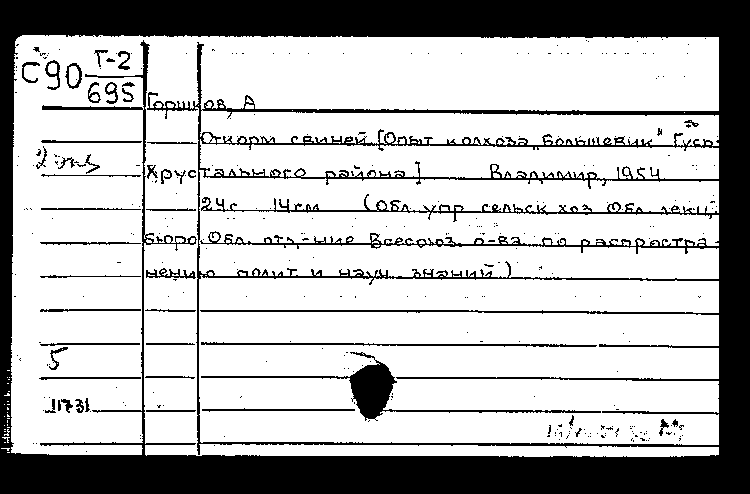 С90 Г-2
695
Горшков, А
Откорм свиней [Опыт колхоза „Большевик" Гусь-
2 экз
Хрустального района] Владимир, 1954
24с 14см (Обл. упр сельск хоз Обл. лекц.
бюро Обл. отд-ние Всесоюз. о-ва по распростра-
нению полит и науч. знаний)
5
11731